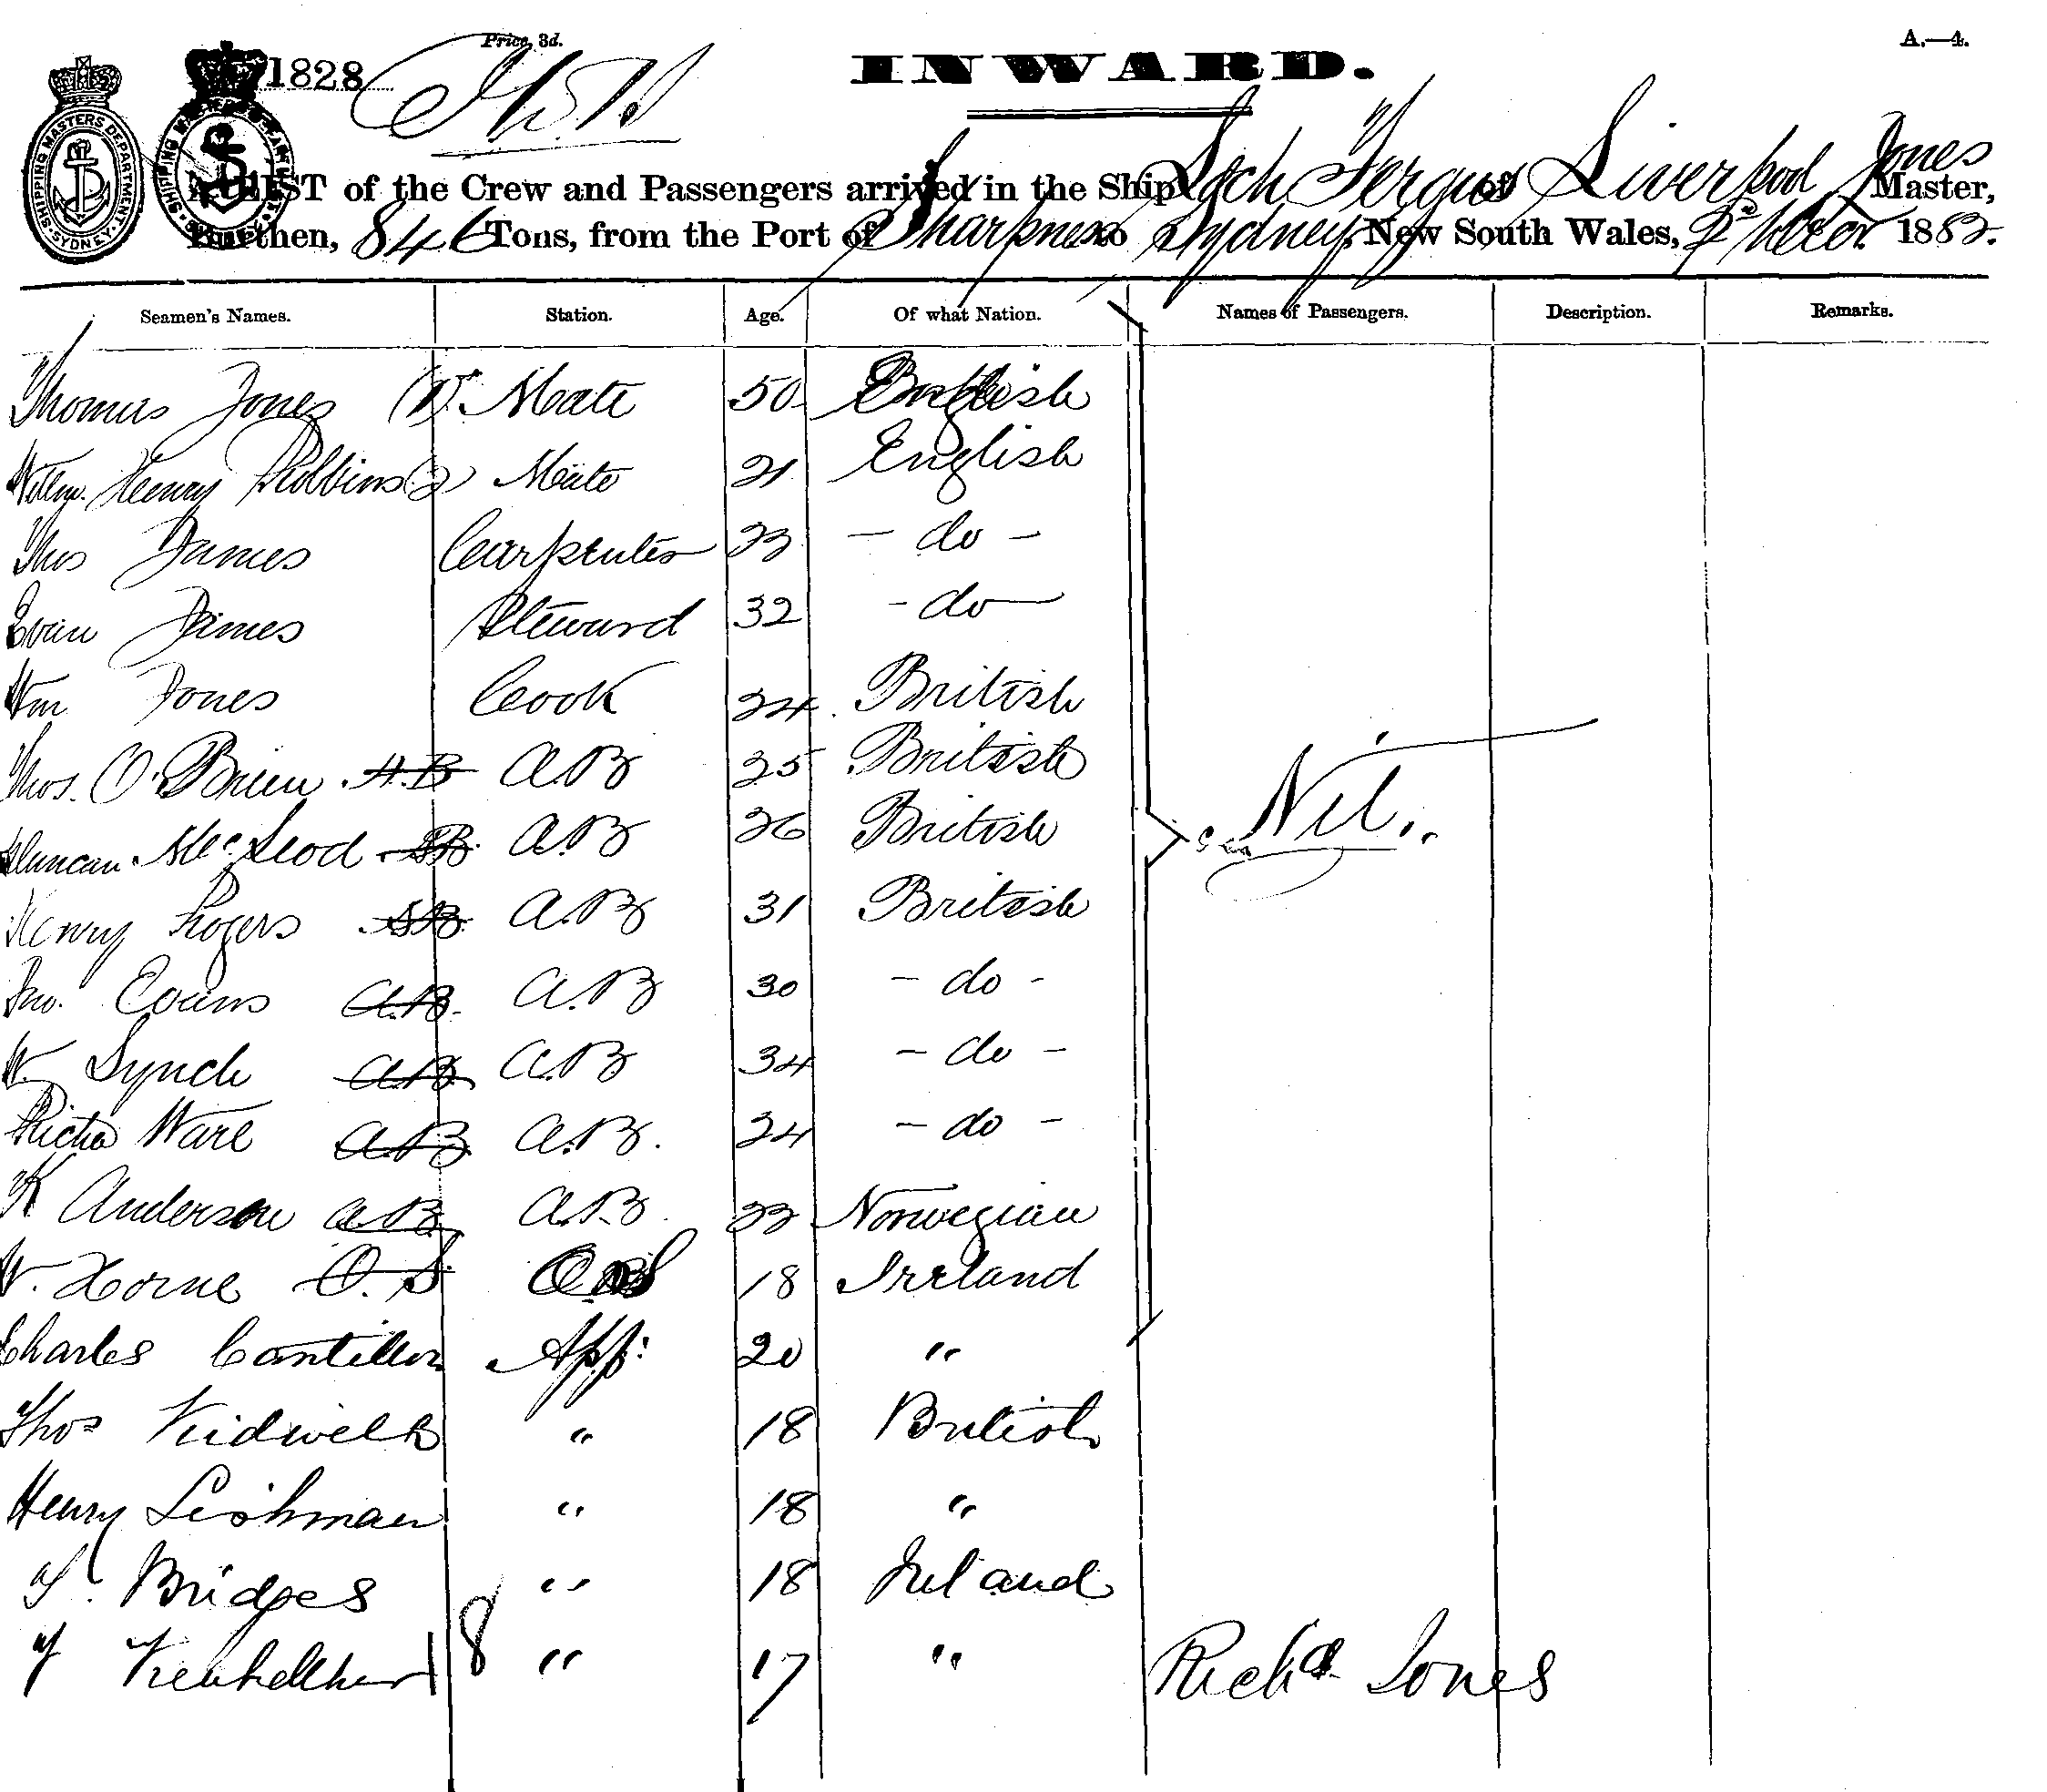 Price, 3d.
A.—4.
1828
INWARD.
SHIPPING MASTERS DEPARTMENT SYDNEY
A LIST of the Crew and Passengers arrived in the Ship Loch Fergus of Liverpool Jones Master,
Burthen, 846 Tons, from the Port of Sharpness to Sydney, New South Wales, 1882.
Seamen's Names. Station. Age. Of what Nation. Names of Passengers. Description. Remarks.
Thomas Jones (1) Mate 50 British
Willm. Henry Robbins (2) Mate 21 English
Thos James Carpenter 23 - do -
Evan James Steward 32 - do -
Wm Jones Cook 24. British
Thos. O'Brien A.B A.B 25 British
Duncan McLeod A.B. A.B 26 British
Nil.
Henry Rogers A.B. A.B 31 British
Jno. Evans A.B. A.B 30 - do -
W. Lynch A.B. A.B 34 - do -
Richd Ware A.B A.B. 24 - do -
K Anderson A.B. A.B. 23 Norwegian
W. Horne O.S. O.S 18 Ireland
Charles Cantillon App: 20 "
Thos Kidwell " 18 British
Henry Lishman " 18 "
T. Bridges " 18 Ireland
18 " 17 " Richd Jones